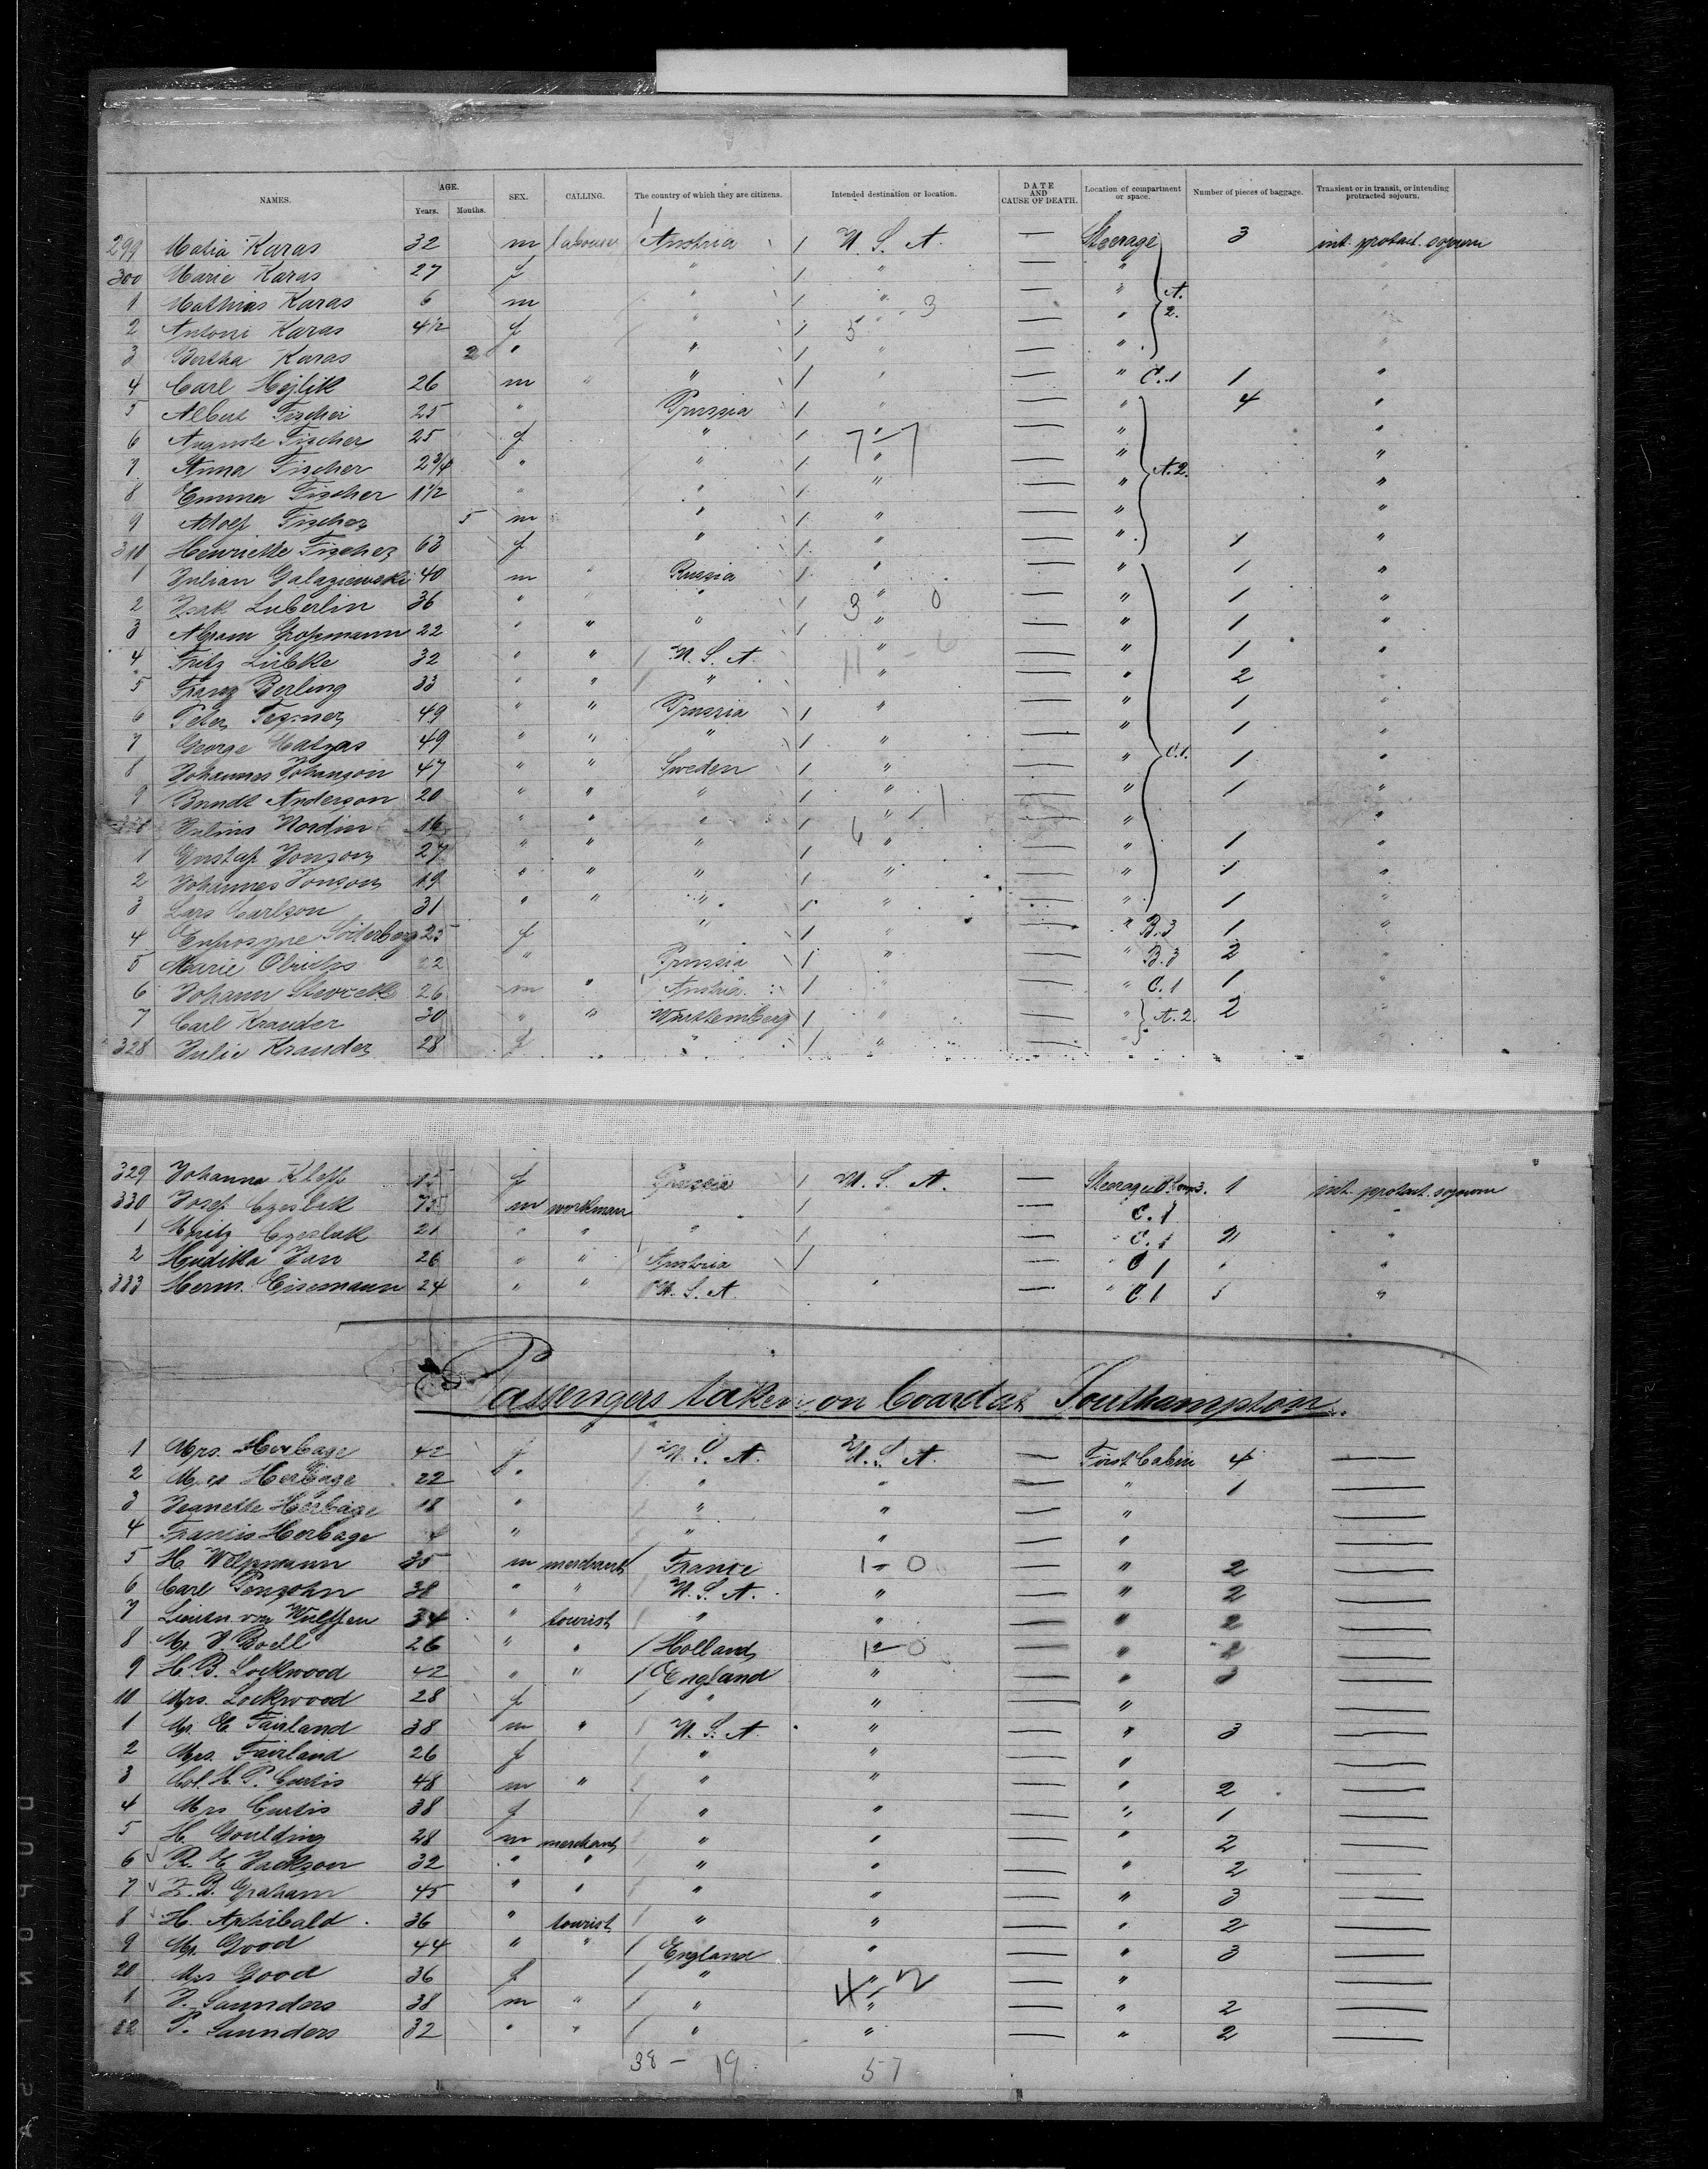 NAMES. AGE. Years. Months. SEX. CALLING. The country of which they are citizens. Intended destination or location. DATE AND CAUSE OF DEATH. Location of compartment or space. Number of pieces of baggage. Transient or in transit, or intending protracted sojourn.
299 Matia Karas 32 m labourer Austria 1 U. S. A. — Steerage 3 int. protact. sojourn
300 Marie Karas 27 f " 1 " — "
1 Mathias Karas 6 m " 1 " — " A.
2 Antoni Karas 4 1/2 f " 1 " — " 2.
3 Bertha Karas 2 " " 1 " — "
4 Carl Hejlik 26 m " " 1 " — " C.1 1 "
5 Albert Fischer 25 " Prussia 1 " — " 4 "
6 Auguste Fischer 25 f " 1 " — " "
7 Anna Fischer 2 3/4 " " 1 " — " A.2. "
8 Emma Fischer 1 1/2 " " 1 " — " "
9 Adolf Fischer 5 m " 1 " — " "
310 Henriette Fischer 63 f " 1 " — " 1 "
1 Julian Galaziewski 40 m " Russia 1 " — " 1 "
2 Isak Luberlin 36 " " " 1 " — " 1 "
3 Abram Großmann 22 " " " 1 " — " 1 "
4 Fritz Lübke 32 " " U. S. A. " — " 1 "
5 Franz Berling 33 " " " " — " 2 "
6 Peter Tesmer 49 " " Prussia 1 " — " 1 "
7 George Matzas 49 " " " 1 " — " 1 "
8 Johannes Johanson 47 " " Sweden 1 " — " C.1. 1 "
9 Brndt Anderson 20 " " " 1 " — " 1 "
Julius Nordin 16 " " " 1 " — " "
1 Gustaf Jonson 27 " " " 1 " — " 1 "
2 Johannes Jonson 19 " " " 1 " — " 1 "
3 Lars Carlson 31 " " " 1 " — " 1 "
4 Söderberg 25 f " 1 " — " B.3 1 "
5 Marie 22 " Prussia 1 " — " B.3 2 "
6 Johann 26 m " Austria 1 " — " C.1 1 "
7 Carl Krauder 30 " " Württemberg 1 " — " A.2. 2 "
328 Julie Krauder 28 f " 1 " — "
329 Johanna f Prussia 1 U. S. A. — Steerage 1 int. protact. sojourn
330 Josef Czeslik m workman 1 — C.1 "
1 21 " " " 1 — " C.1 2 "
2 Hudika Jan 26 " " Austria 1 — " C1 "
333 Herm. Eisemann 24 " " U. S. A. " — " C.1 "
Passengers taken on board at Southampton.
1 Mrs. Herbage 42 f U. S. A. U. S. A. — First Cabin 4 —
2 Herbage 22 " " " — " 1 —
3 Jeanette Herbage 18 " " " — " —
4 Francis Herbage " " " — " —
5 H. 35 m merchant France 1-0 — " 2 —
6 Carl 38 " " U. S. A. " — " 2 —
7 von Wulffen 34 " tourist " " — " 2 —
8 Mr. J. Boell 26 " " Holland 1-0 — " 2 —
9 H. B. Lockwood 42 " " England " — " 3 —
10 Mrs. Lockwood 28 f " " — " —
1 Mr. C. Fairland 38 m " U. S. A. " — " 3 —
2 Mrs. Fairland 26 f " " — " —
3 Col. H. P. Curtis 48 m " " " — " 2 —
4 Mrs Curtis 38 f " " — " 1 —
5 H. Goulding 28 m merchant " " — " 2 —
6 R. C. Jackson 32 " " " " — " 2 —
7 Z. B. Graham 45 " " " " — " 3 —
8 H. Aphibald 36 " tourist " " — " 2 —
9 Mr. Good 44 " " England " — " 3 —
20 Mrs Good 36 f " " — " —
1 J. Saunders 38 m " " " — " 2 —
22 P. Saunders 32 " " " " — " 2 —
38 - 19 57